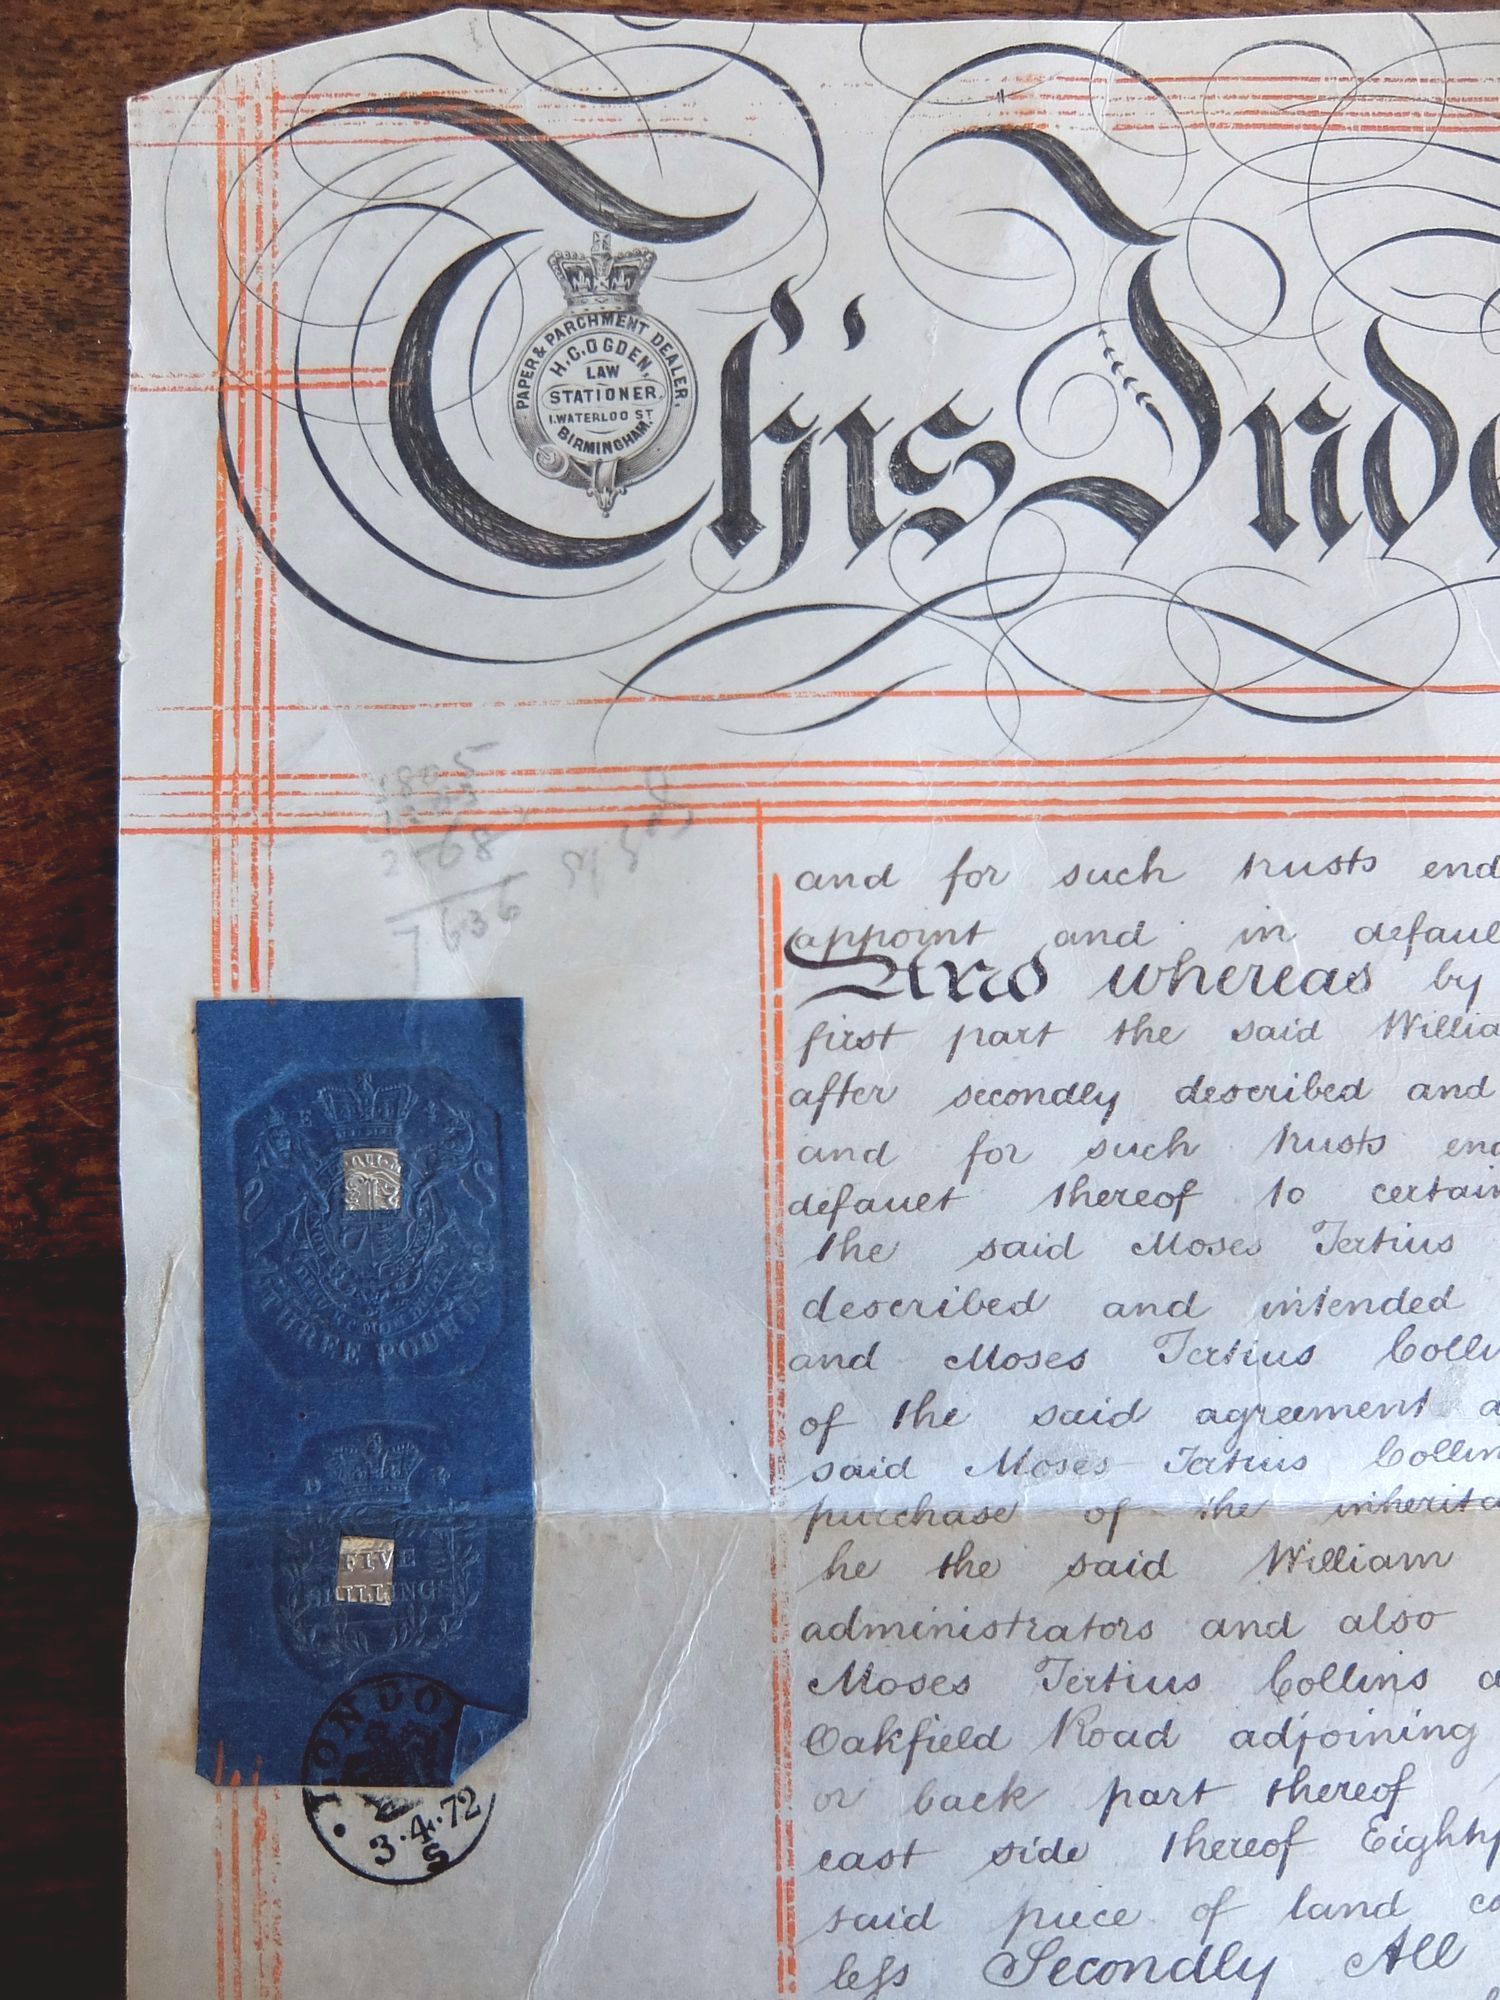 This Inde
PAPER & PARCHMENT DEALER,
H.C.OGDEN,
LAW
STATIONER,
1,WATERLOO ST
BIRMINGHAM.
7636
and for such trusts end
appoint and in defaul
And whereas by
first part the said Willia
after secondly described and
and for such trusts end
default thereof to certain
the said Moses Tertius
described and intended
and Moses Tertius Colli
of the said agreement a
said Moses Tertius Collin
purchase of the inherita
he the said William
administrators and also
Moses Tertius Collins a
Oakfield Road adjoining
or back part thereof
east side thereof Eightp
said piece of land co
less Secondly All
THREE POUNDS
FIVE
SHILLINGS
LONDO
3.4.72
S